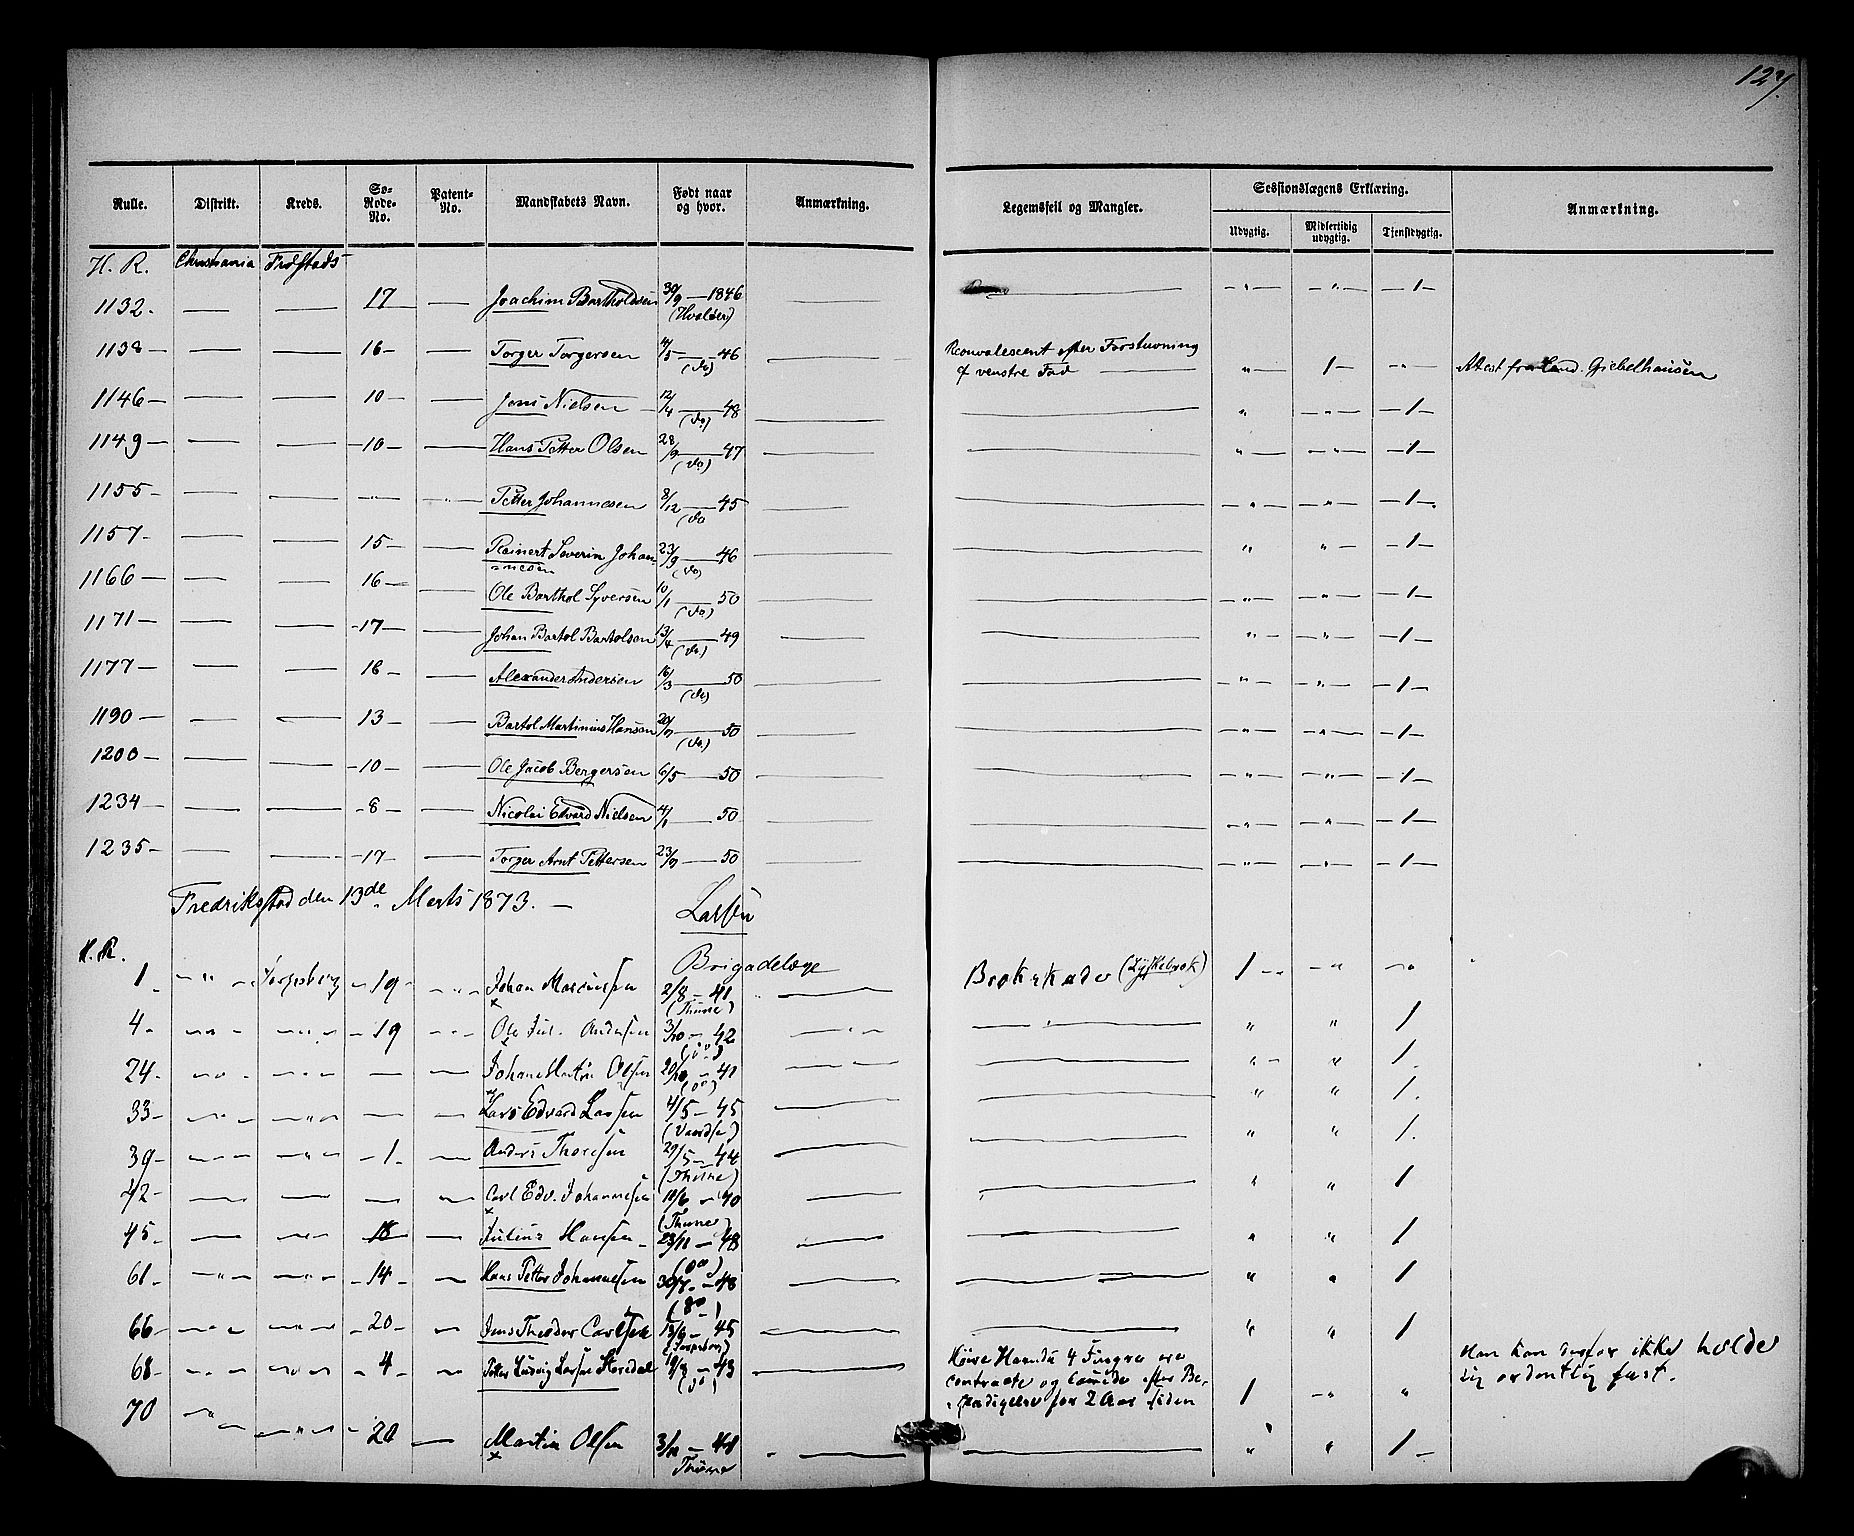 127.
Rulle. Distrikt. Kreds. Sø-Rode-No. Patent-No. Mandskabets Navn. Født naar og hvor. Anmærkning. Legemsfeil og Mangler. Sessionslægens Erklæring. Anmærkning.
Udygtig. Midlertidig udygtig. Tjenstdygtig.
H. R. Christiania Fredstads
1132. — — 17 — Joachim Bartholdsen 30/9 — 1846 (Hvaløer) — — — " — — " — — 1 —
1138 — — — 16 — — Torger Torgersen 4/5 — 46 (do) Reconvalescent efter Forstuvning
af venstre Fod — — " — 1 — — " — Attest fra Giebelhausen
1146 — — — 10 — — Jens Nielsen — 12/4 — 48 (do) — — " — " — — 1 —
1149 — — — — 10 — — Hans Petter Olsen 28/9 — 47 (do) — — — " — — " — — 1 —
1155 — — — — " — — " — Petter Johannesen 8/12 — 45 (do — — — " — — " — — 1 —
1157 — — — 15 — — Reinert Severin Johan-
nesen 23/9 — 46 (do) — — " " — — 1 —
1166 — — — 16 — — Ole Barthol Syversen 10/1 — 50 (do) — — — " — — " — — 1 —
1171 — — — — 17 — — Johan Bartol Bartolsen 13/4 — 49 (do) — — — " — — " — — 1 —
1177 — — — 16 — — Alexander Andersen 16/3 — 50 (do) — — — " — — " — — 1 —
1190 — — — 13 — — Bartol Martinius Hansen 20/7 — 50 (do) — — — " — — " — — 1 —
1200 — — — — 10 — — Ole Jacob Bergersen 6/5 — 50 — — — " — — " — — 1 —
1234 — — — — 8 — — Nicolai Edvard Nielsen 4/1 — 50 — — — " — — " — — 1 —
1235 — — — — 17 — — Torger Arnt Pettersen 23/7 — 50 — — — " — — " — — 1 —
Fredrikstad den 13de Marts 1873. —
Larsen
Brigadelæge
H. R.
1. — " — Torpsberg — 19 — — " — Johan 2/8 — 41 (Thune) — Brokskade (Lyskebrok) 1 — — " — "
4 — — " — — " — — 19 — " — Ole Jul. Andersen 3/10 — 42 (do) — " — — " " 1
24 — — " — — " — — — Johan Martin Olsen 20/10 — 41 (do) — — " — " 1.
33 — — " — — " — — — Lars Edvard Larsen 4/5 — 45 — — " " 1.
39 — — " — — " — — 1 — — Anders Thoresen 29/5 — 44 — — " " 1.
42 — — — — — Carl Edv. Johannesen 10/6 — 40 (Thune) — — " " 1
45 — — " — 18 — Julius Hansen — 23/11 — 48 (do) — — " " 1
61 — — " — — " — — 14 — — Hans Petter Johannesen 30/7 — 48 (do) — — " " 1
66 — — " — — " — — 20 — — Jens Theodor Carlsen 13/9 — 45 (Torpsberg) — — " " 1
68 — — " — — " — — 4 — — Petter Ludvig Larsen 19/8 — 43 (do) Høire Haands 4 Fingre ere
contracte og efter Be-
skadigelse for 2 Aar siden 1 — " " Han kan derfor ikke holde
sig ordentlig fast.
70 — " — — " — — 20 — Martin Olsen 3/12 — 48 Thune — — " " 1 —